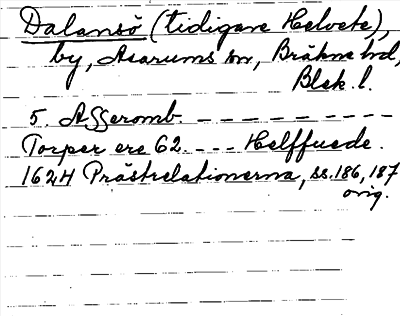 Dalansö (tidigare Helvete),
by, Asarums sn, Bräkne hd,
Blek. l.
5. Afferomb. – – – – – – – –
Torper ere 62. – – – Helffuede.
1624 Prästrelationerna, ss. 186, 187
orig.